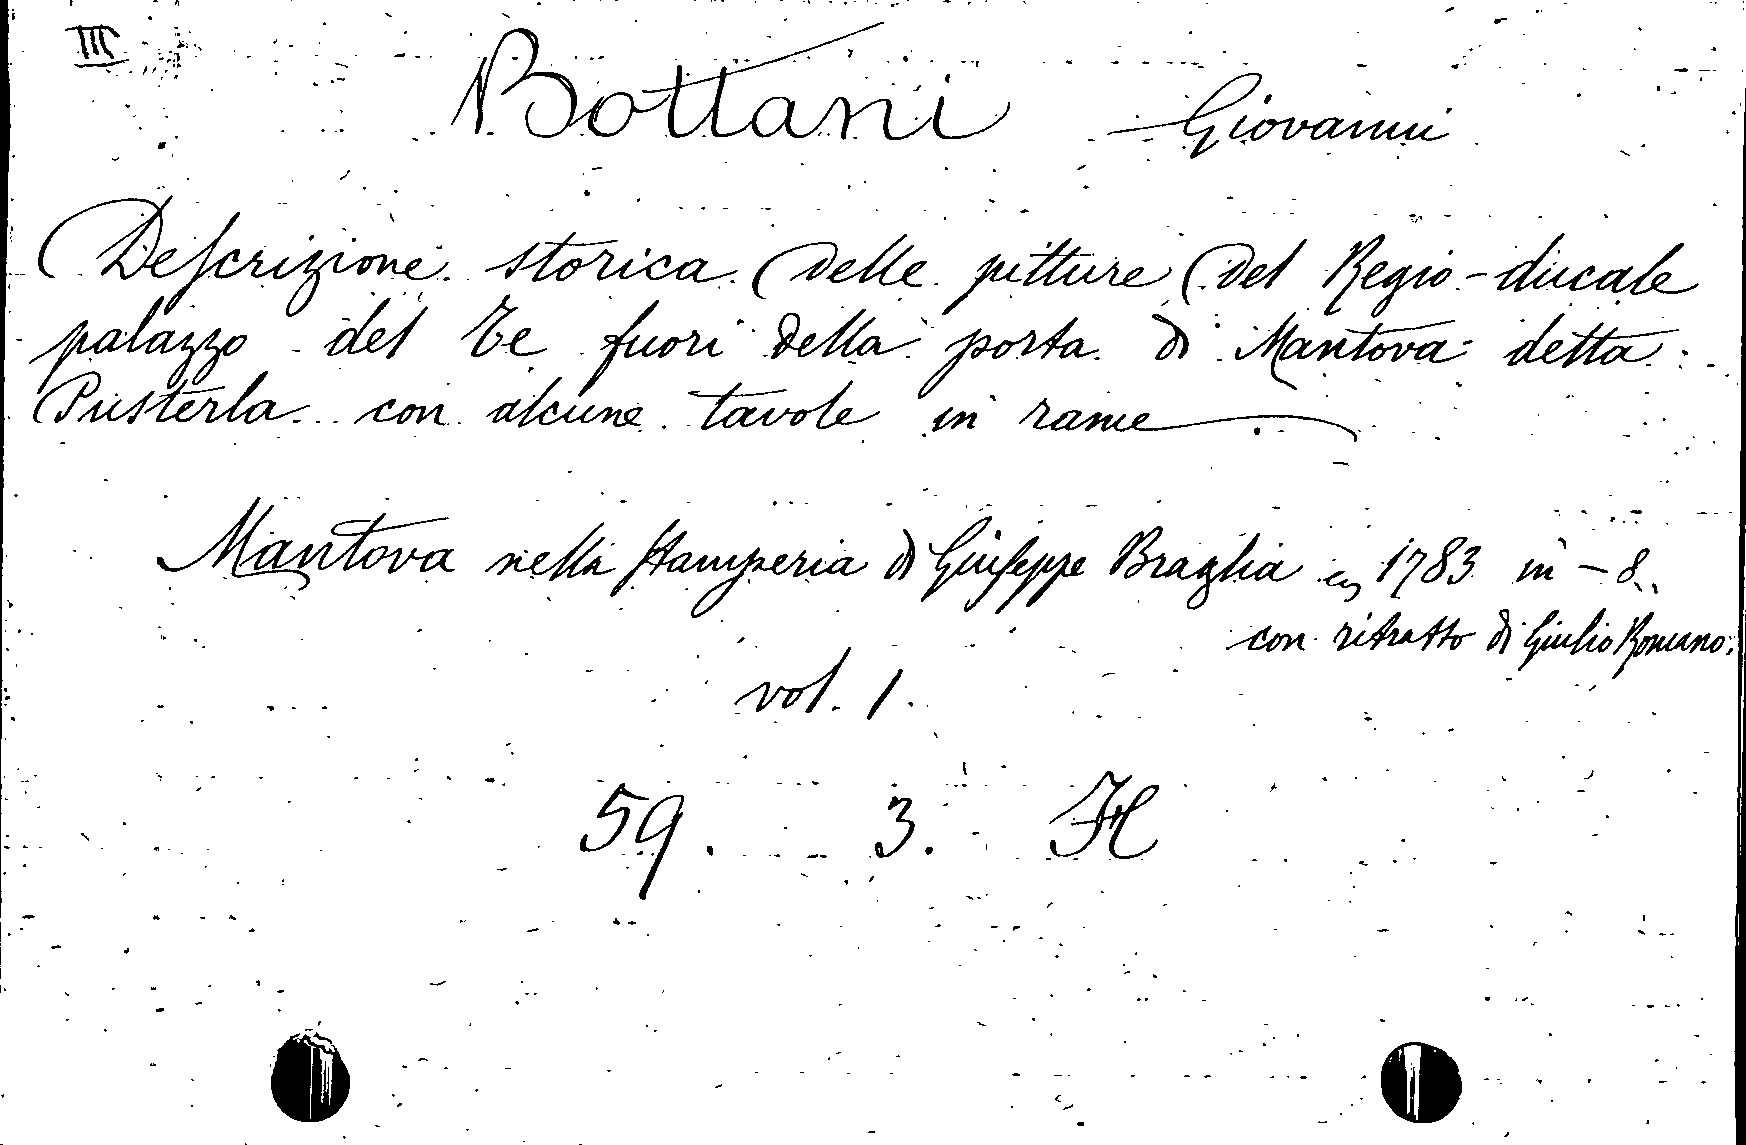 III
Bottani Giovanni
Descrizione storica delle pitture del Regio-ducale
palazzo del Te fuori della porta di Mantova detta
Pusterla con alcune tavole in rame
Mantova nella stamperia di Giuseppe Braglia 1783 in-8.
con ritratto di Giulio Romano.
vol. 1.
59. 3. H